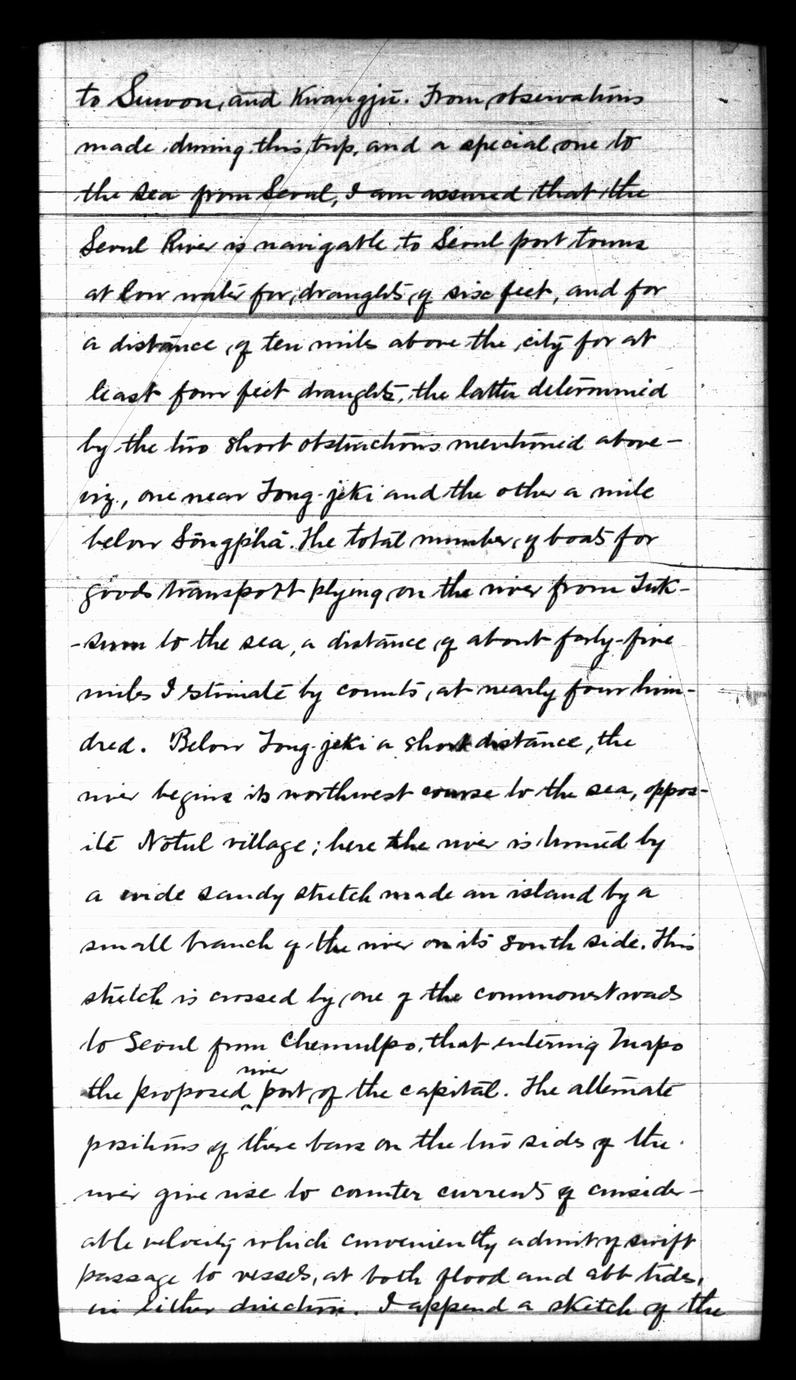 to Suwon, and Kwangju. From observations
made during this trip, and a special one to
the sea from Seoul, I am assured that the
Seoul River is navigable to Seoul port towns
at low water for draughts of six feet, and for
a distance of ten miles above the city for at
least four feet draughts, the latter determined
by the two short obstructions mentioned above-
viz., one near Tong-jeki and the other a mile
below Songpha. The total number of boats for
goods transport plying on the river from Tuk-
-sum to the sea, a distance of about forty-five
miles I estimate by counts, at nearly four hun-
dred. Below Tong-jeki a short distance, the
river begins its northwest course to the sea, oppos-
ite Notul village; here the river is by
a wide sandy stretch made an island by a
small branch of the river on its south side. This
stretch is crossed by one of the commonest roads
to Seoul from Chemulpo, that entering Mapo
the proposed river port of the capital. The alternate
positions of these bars on the two sides of the
river give rise to counter currents of consider-
able velocity which conveniently admit of swift
passage to vessels, at both flood and ebb tides,
in either direction. I append a sketch of the